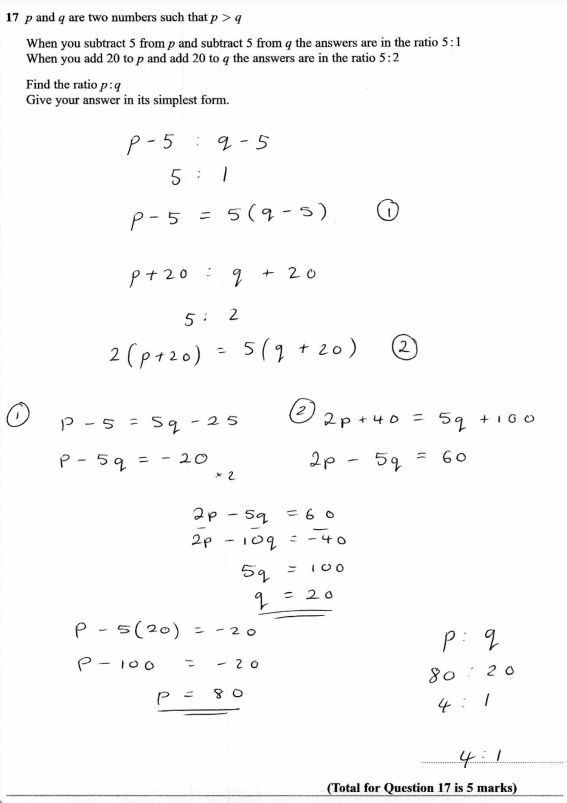 17 p and q are two numbers such that p > q
When you subtract 5 from p and subtract 5 from q the answers are in the ratio 5:1
When you add 20 to p and add 20 to q the answers are in the ratio 5:2
Find the ratio p:q
Give your answer in its simplest form.
p - 5 : q - 5
5 : 1
p - 5 = 5(q - 5) ①
p + 20 : q + 20
5 : 2
2(p+20) = 5(q + 20) ②
① p - 5 = 5q - 25
p - 5q = - 20
× 2
② 2p + 40 = 5q + 100
2p - 5q = 60
2p - 5q = 60
2p - 10q = -40
5q = 100
q = 20
p - 5(20) = -20
p - 100 = - 20
p = 80
p : q
80 : 20
4 : 1
4 : 1
(Total for Question 17 is 5 marks)